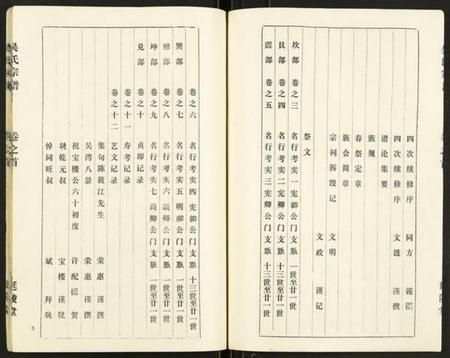 四次续修序 同方 谨撰
四次续修序 文遴 谨撰
谱论集要
族规
春祭定章
族会简章
宗祠拆毁记 文明
文政 谨记
祭文
坎部 卷之三 名行考实一宪卿公门支脉 一世至廿一世
艮部 卷之四 名行考实二宪卿公门支脉 一世至廿一世
震部 卷之五 名行考实三宪卿公门支脉 十三世至廿一世
卷之六 名行考实四宪卿公门支脉 十三世至廿一世
巽部 卷之七 名行考实五明卿公门支脉 一世至廿一世
卷之八 名行考实六 公门支脉 一世至廿一世
坤部 卷之九 名行考实七尚卿公门支脉 一世至廿一世
卷之十 贞节记录
兑部 卷之十一 寿考记录
卷之十二 艺文记录
集句陈 江先生 荣惠 谨撰
吴湾八景 荣惠 谨撰
祝宝楼公六十初度 许配 贺
挽乾元叔 宝楼 谨挽
悼同旺叔 斌 拜挽
吴氏宗谱 卷之首 延陵堂